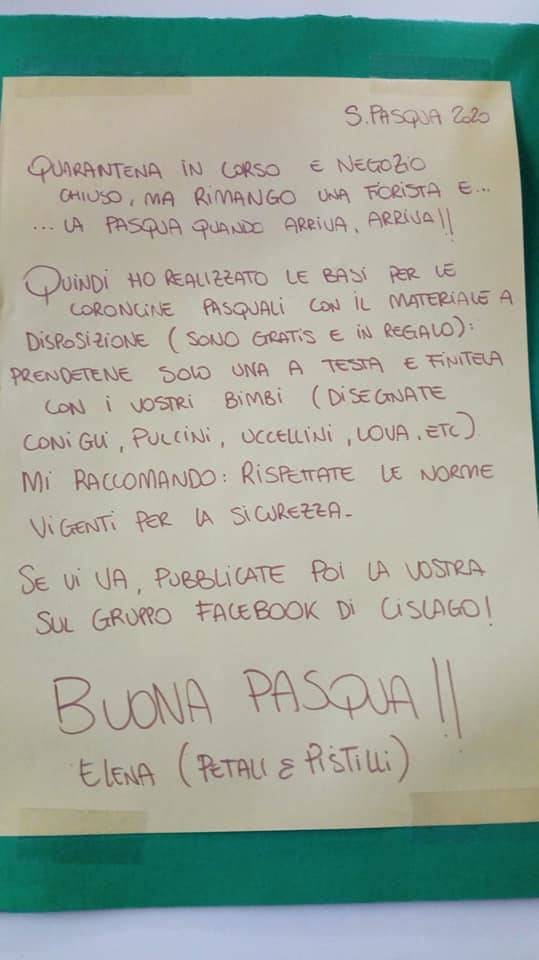 S. PASQUA 2020
QUARANTENA IN CORSO E NEGOZIO
CHIUSO, MA RIMANGO UNA FIORISTA E...
... LA PASQUA QUANDO ARRIVA, ARRIVA!!
QUINDI HO REALIZZATO LE BASI PER LE
CORONCINE PASQUALI CON IL MATERIALE A
DISPOSIZIONE (SONO GRATIS E IN REGALO):
PRENDETENE SOLO UNA A TESTA E FINITELA
CON I VOSTRI BIMBI (DISEGNATE
CONIGLI, PULCINI, UCCELLINI, UOVA, ETC)
MI RACCOMANDO: RISPETTATE LE NORME
VIGENTI PER LA SICUREZZA.
SE VI VA, PUBBLICATE POI LA VOSTRA
SUL GRUPPO FACEBOOK DI CISLAGO!
BUONA PASQUA!!
ELENA (PETALI & PISTILLI)